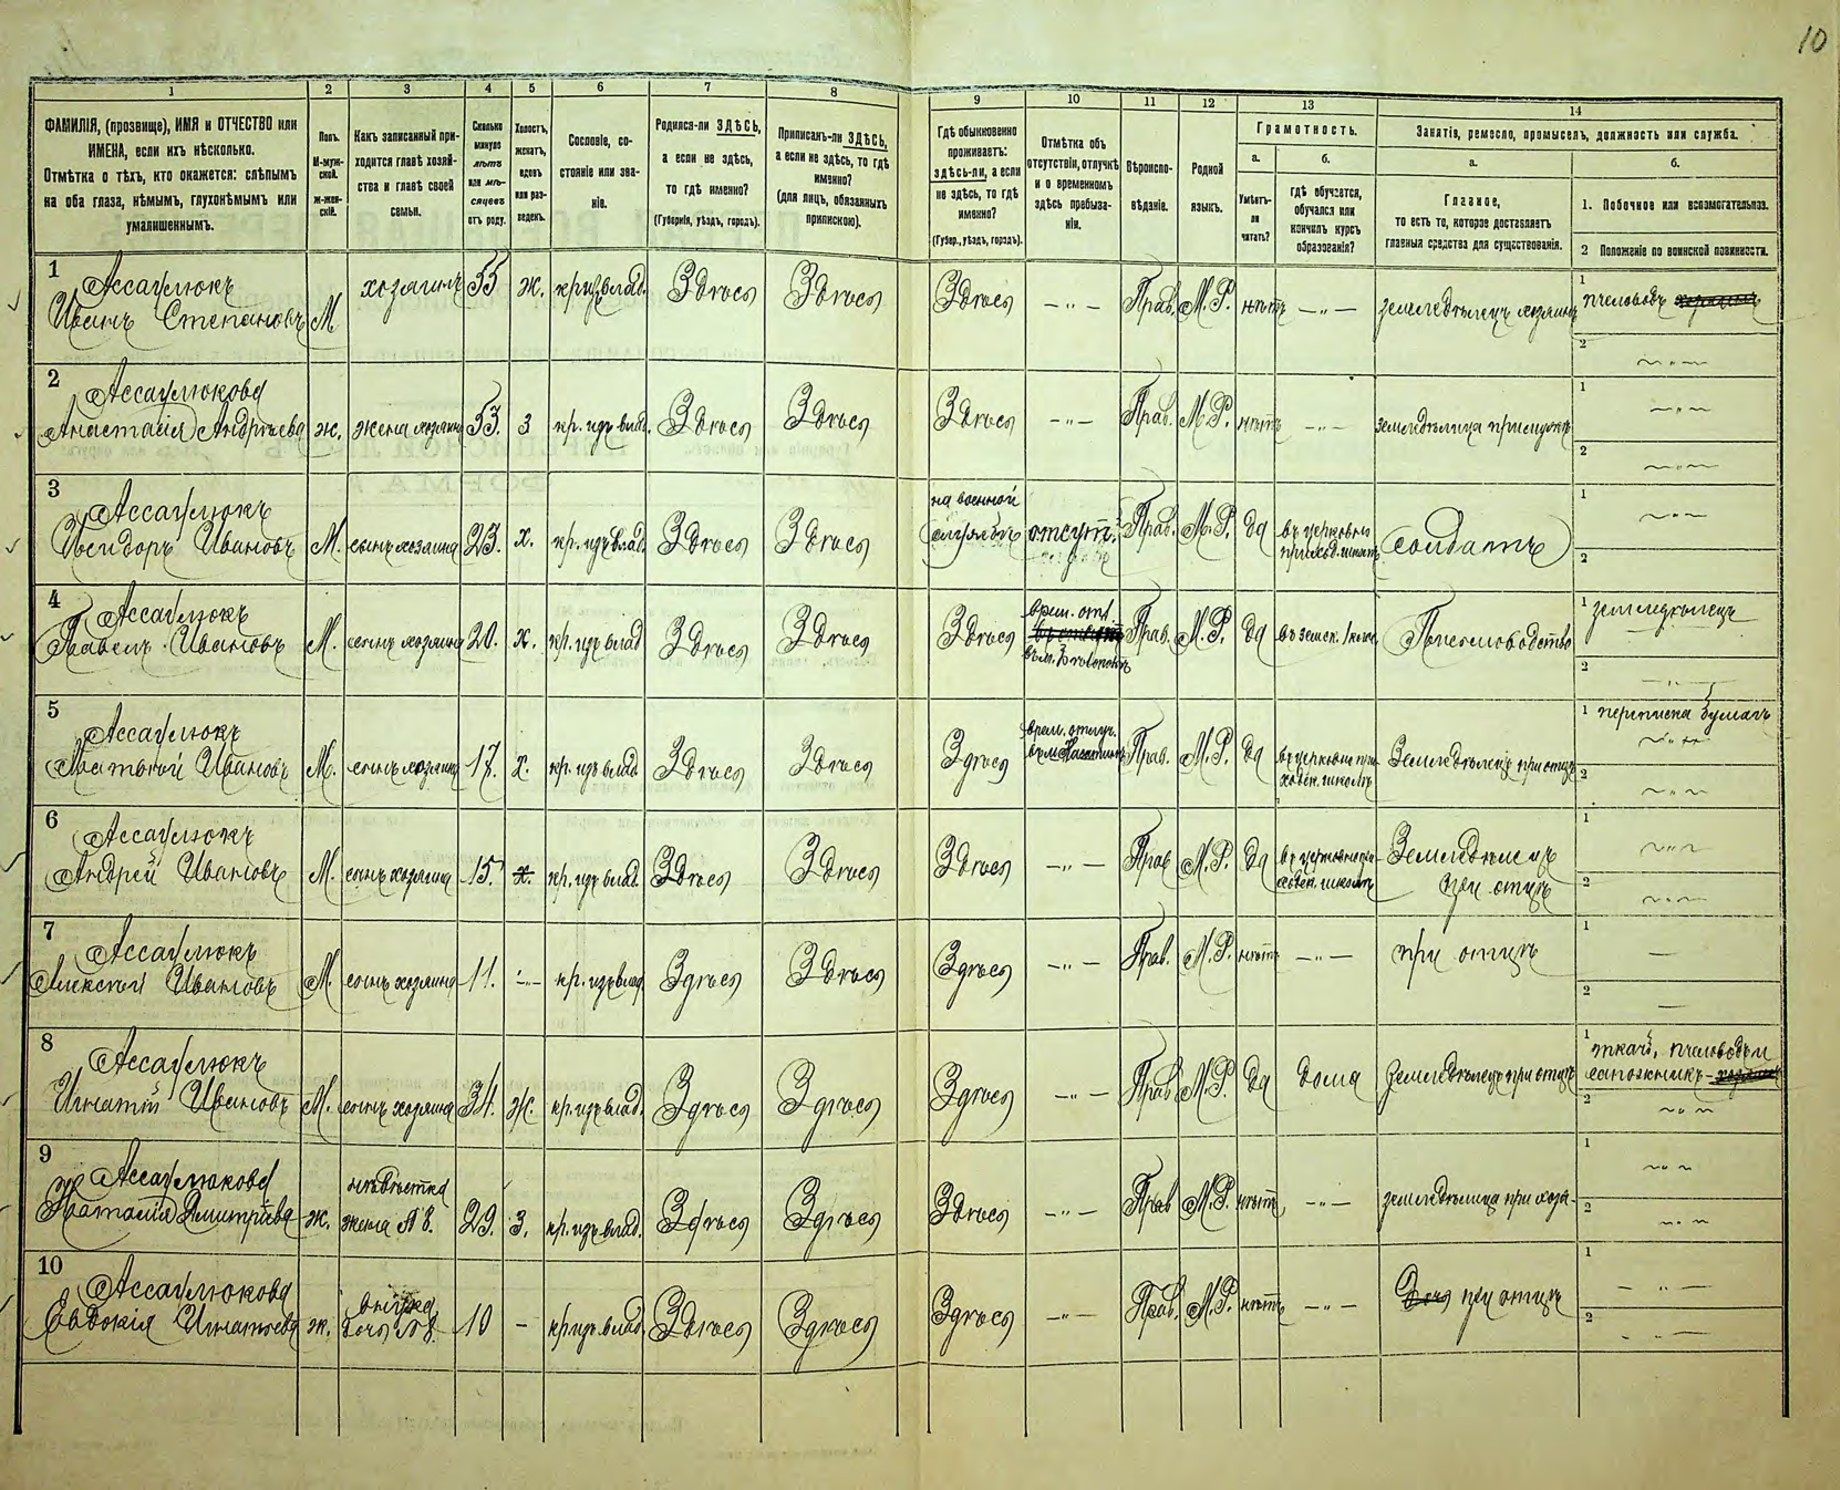 10
1
2
3
4
5
6
7
8
9
10
11
12
13
14
ФАМИЛІЯ, (прозвище), ИМЯ и ОТЧЕСТВО или
ИМЕНА, если ихъ нѣсколько.
Отмѣтка о тѣхъ, кто окажется: слѣпымъ
на оба глаза, нѣмымъ, глухонѣмымъ или
умалишеннымъ.
Полъ.
М-муж-
ской.
ж-жен-
скій.
Какъ записанный при-
ходится главѣ хозяй-
ства и главѣ своей
семьи.
Сколько
минуло
лѣтъ
или мѣ-
сяцевъ
отъ роду.
Холостъ,
женатъ,
вдовъ
или раз-
веденъ.
Сословіе, со-
стояніе или зва-
ніе.
Родился-ли ЗДѢСЬ,
а если не здѣсь,
то гдѣ именно?
(Губернія, уѣздъ, городъ).
Приписанъ-ли ЗДѢСЬ,
а если не здѣсь, то гдѣ
именно?
(для лицъ, обязанныхъ
припискою).
Гдѣ обыкновенно
проживаетъ:
здѣсь-ли, а если
не здѣсь, то гдѣ
именно?
(Губер., уѣздъ, городъ).
Отмѣтка объ
отсутствіи, отлучкѣ
и о временномъ
здѣсь пребыва-
ніи.
Вѣроиспо-
вѣданіе.
Родной
языкъ.
Грамотность.
а.
Умѣетъ-
ли
читать?
б.
гдѣ обучается,
обучался или
кончилъ курсъ
образованія?
Занятія, ремесло, промыселъ, должность или служба.
а.
Главное,
то есть то, которое доставляетъ
главныя средства для существованія.
б.
1. Побочное или вспомогательное.
2 Положеніе по воинской повинности.
1
Ассаулюкъ
Иванъ Степановъ М
хозяинъ 55 ж. кр.изъ влад. Здѣсь Здѣсь Здѣсь — " — Прав. М.Р. нѣтъ — " — земледѣлецъ хозяинъ
1 пчеловодъ
2
2
Ассаулюкова
Анастасія Андрѣева ж. жена хозяина 53. З кр. изъ влад. Здѣсь Здѣсь Здѣсь — " — Прав. М.Р. нѣтъ — " — земледѣлица при мужѣ
1
2
3
Ассаулюкъ
Исидоръ Ивановъ М. сынъ хозяина 23. х. кр. изъ влад. Здѣсь Здѣсь
на военной
службѣ отсутт. Прав. М.Р. да въ церковно
приход. школѣ солдатъ
1
2
4
Ассаулюкъ
Павелъ Ивановъ М. сынъ хозяина 20. х. кр. изъ влад Здѣсь Здѣсь Здѣсь
врем. отл.
Прав. М.Р. да въ земск. Пчеловодство
1 земледѣлецъ
2
5
Ассаулюкъ
Матвѣй Ивановъ М. сынъ хозяина 17. х. кр. изъ влад. Здѣсь Здѣсь Здѣсь
врем. отлуч.
Прав. М.Р. да въ церковно при-
ходск. школѣ Земледѣлецъ при отцѣ
1 переписка бумагъ
2
6
Ассаулюкъ
Андрей Ивановъ М. сынъ хозяина 15. х. кр. изъ влад. Здѣсь Здѣсь Здѣсь — " — Прав М.Р. да въ церковно при-
ходск. школѣ Земледѣлецъ
при отцѣ
1
2
7
Ассаулюкъ
Алексѣй Ивановъ М. сынъ хозяина 11. — кр. изъ влад Здѣсь Здѣсь Здѣсь — " — Прав. М.Р. нѣтъ — " — при отцѣ
1 —
2 —
8
Ассаулюкъ
Игнатій Ивановъ М. сынъ хозяина 34. Ж. кр. изъ влад. Здѣсь Здѣсь Здѣсь — " — Прав М.Р. да дома Земледѣлецъ при отцѣ
1 ткачъ, пчеловодъ и
сапожникъ
2
9
Ассаулюкова
Наталія Дмитріева ж.
невѣстка
жена № 8. 29. З. кр. изъ влад. Здѣсь Здѣсь Здѣсь — " — Прав М.Р. нѣтъ — " — земледѣлица при хозя-
1
2
10
Ассаулюкова
Евдокія Игнатьева ж.
внучка
дочь № 8 10 — кр изъ влад Здѣсь Здѣсь Здѣсь — " — Прав. М.Р. нѣтъ — " — Дочь при отцѣ
1 — " —
2